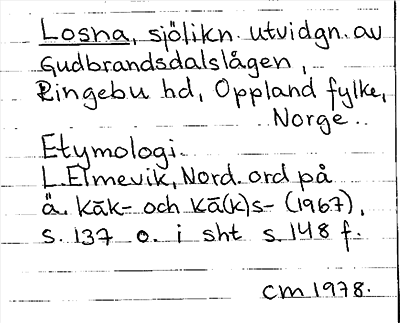 Losna, sjölikn. utvidgn. av
Gudbrandsdalslågen,
Ringebu hd, Oppland fylke,
Norge.
Etymologi.
L. Elmevik, Nord. ord på
ä. kāk- och kā(k)s- (1967),
s. 137 o. i sht s. 148 f.
CM 1978.